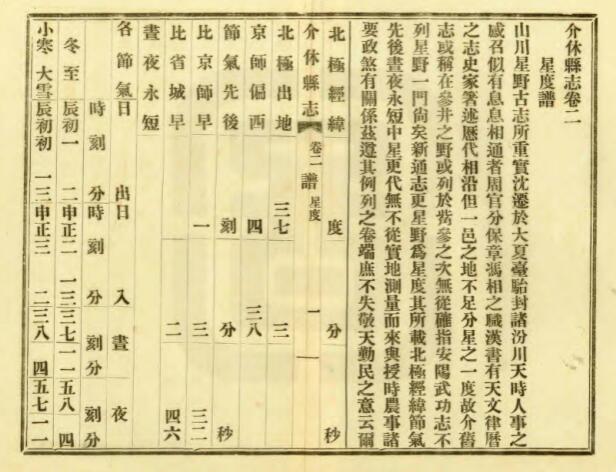 介休縣志卷二
星度譜
山川星野古志所重實沈遷於大夏臺駘封諸汾川天時人事之
感召似有息息相通者周官分保章馮相之職漢書有天文律曆
之志史家著述歷代相沿但一邑之地不足分星之一度故介舊
志或稱在參井之野或列於觜參之次無從確指安陽武功志不
列星野一門尙矣新通志更星野爲星度其所載北極經緯節氣
先後晝夜永短中星更代無不從實地測量而來與授時農事諸
要政煞有關係茲遵其例列之卷端庶不失敬天勤民之意云爾
北極經緯 度 分 秒
介休縣志 卷二 譜 星度 一
北極出地 三七 三
京師偏西 四 三八
節氣先後 刻 分 秒
比京師早 一 三 三二
比省城早 二 四六
晝夜永短
各節氣日 出日 入 晝 夜
時刻 分時刻 分 刻分 刻分
冬至 辰初一 二 申正二 一三 三七 一一 五八 四
小寒 大雪 辰初初 一三 申正三 二 三八 四 五七 一一